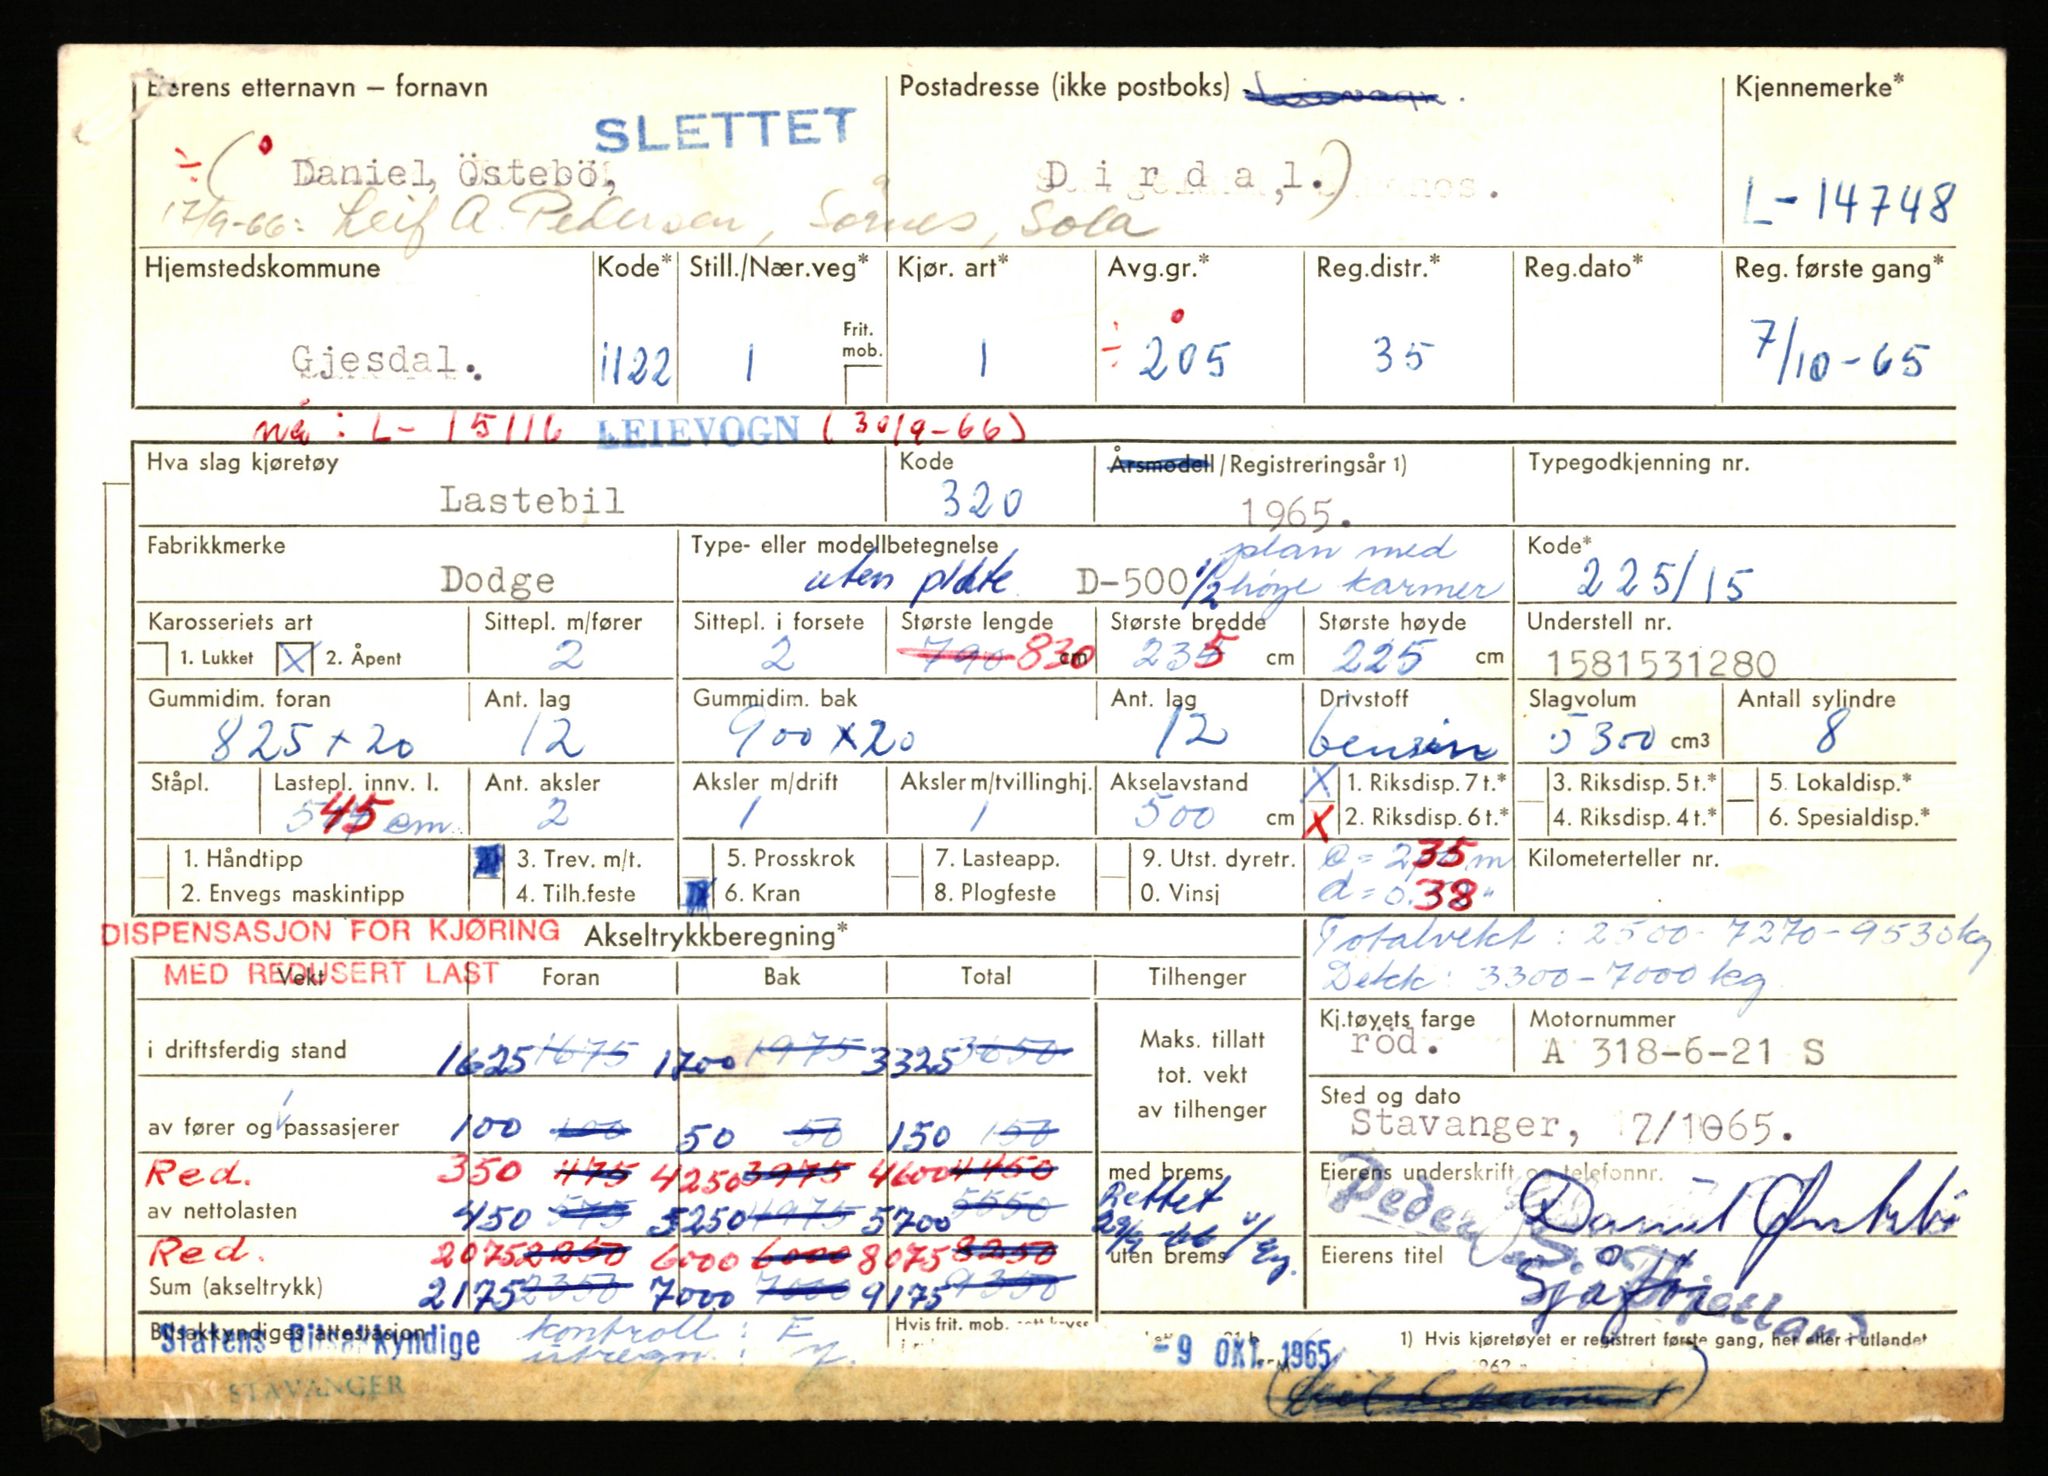 Eierens etternavn – fornavn
Postadresse (ikke postboks)
Kjennemerke*
SLETTET
÷( Daniel, Östebö,
Dirdal.)
L-14748
17/9-66: Leif A. Pedersen, Sörnes, Sola
Hjemstedskommune
Kode*
Still./Nær.veg*
Kjør. art*
Avg.gr.*
Reg.distr.*
Reg.dato*
Reg. første gang*
Gjesdal.
1122
1
Frit. mob.
1
÷ 205
35
7/10-65
nå: L-15116 LEIEVOGN (30/9-66)
Hva slag kjøretøy
Kode
Årsmodell/Registreringsår 1)
Typegodkjenning nr.
Lastebil
320
1965.
Fabrikkmerke
Type- eller modellbetegnelse
plan med
Kode*
Dodge
uten plate
D-500
1/2 høye karmer
225/15
Karosseriets art
Sittepl. m/fører
Sittepl. i forsete
Største lengde
Største bredde
Største høyde
Understell nr.
1. Lukket
X 2. Åpent
2
2
790 830 cm
235 cm
225 cm
1581531280
Gummidim. foran
Ant. lag
Gummidim. bak
Ant. lag
Drivstoff
Slagvolum
Antall sylindre
825 x 20
12
900 x 20
12
bensin
5300 cm3
8
Ståpl.
Lastepl. innv. l.
Ant. aksler
Aksler m/drift
Aksler m/tvillinghj.
Akselavstand
X 1. Riksdisp. 7 t.*
3. Riksdisp. 5 t.*
5. Lokaldisp.*
545 cm
2
1
1
500 cm
X 2. Riksdisp. 6 t.*
4. Riksdisp. 4 t.*
6. Spesialdisp.*
1. Håndtipp
3. Trev. m/t.
5. Prosskrok
7. Lasteapp.
9. Utst. dyretr.
35 m
Kilometerteller nr.
2. Envegs maskintipp
4. Tilh.feste
6. Kran
8. Plogfeste
0. Vinsj
d = 0.38
DISPENSASJON FOR KJØRING
Akseltrykkberegning*
Totalvekt: 2500-7270-9530kg
MED REDUSERT LAST
Vekt
Foran
Bak
Total
Tilhenger
Dekk: 3300-7000kg
i driftsferdig stand
1625 1675
1700 1975
3325 3650
Maks. tillatt
tot. vekt
av tilhenger
Kj.tøyets farge
Motornummer
röd.
A 318-6-21 S
av fører og 1 passasjerer
100 100
50 50
150 150
Sted og dato
Stavanger, 7/1065.
Red.
350 475
4250 3975
4600 4450
med brems
Eierens underskrift og telefonnr.
av nettolasten
450 575
5250 4975
5700 5550
Rettet
29/9-66
Daniel Östebö
Red.
2075 2250
6000 6000
8075 8250
uten brems
Eierens titel
Sum (akseltrykk)
2175 2350
7000 7000
9175 9350
Sjåför
Bilsakkyndiges attestasjon
Statens Bilsakkyndige
kontroll:
utregn.:
Hvis frit. mob.
-9 OKT. 1965
1) Hvis kjøretøyet er registrert første gang, her eller i utlandet
STAVANGER